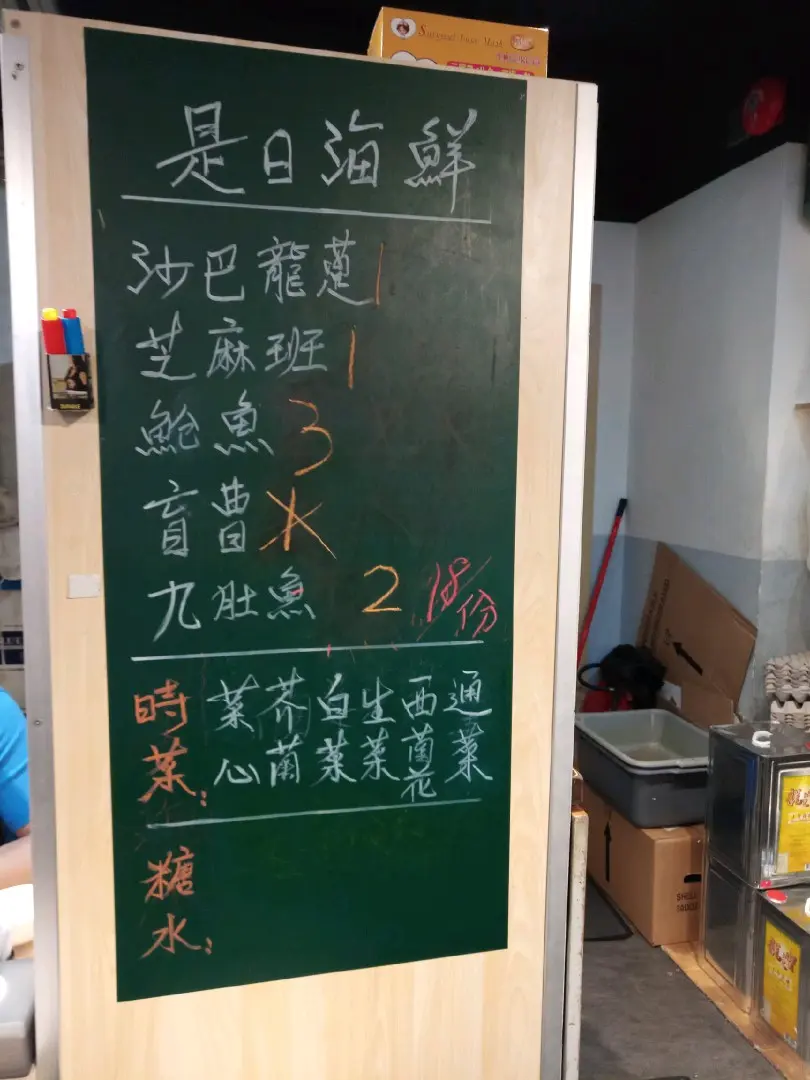 Surgical Face Mask
是日海鮮
沙巴龍躉 1
芝麻班 1
鮑魚 3
盲曹 X
九肚魚 2 18/份
時菜:
菜心
芥蘭
白菜
生菜
西蘭花
通菜
糖水: